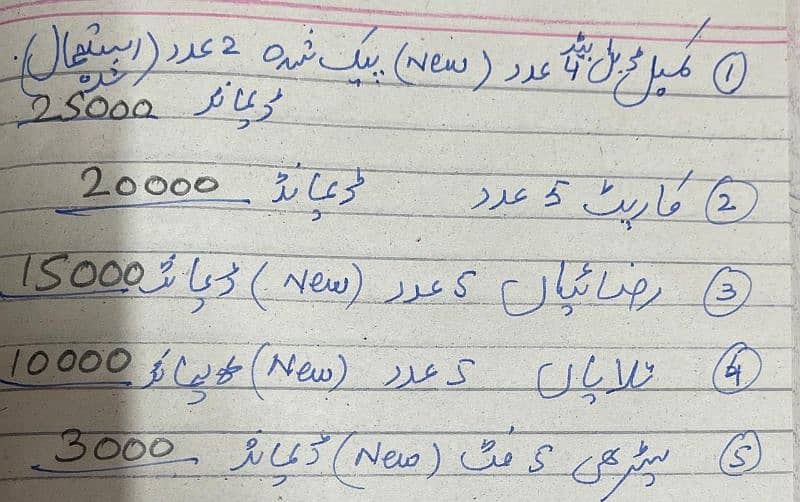 ① کمبل ڈبل بیڈ 4 عدد (New) پیک شدہ 2 عدد (استعمال شدہ)
ڈیمانڈ 25000
② کارپٹ 5 عدد ڈیمانڈ 20000
③ رضائیاں 5 عدد (New) ڈیمانڈ 15000
④ تلایاں 5 عدد (New) ڈیمانڈ 10000
⑤ سیڑھی 5 فٹ (New) ڈیمانڈ 3000